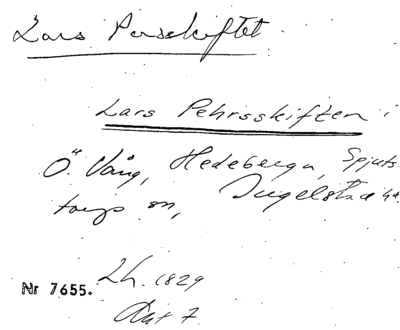 Lars Persskiftet
Lars Pehrsskiften i
Ö. Vång, Hedeberga, Spjuts-
torps sn, Ingelstad hd.
Lh. 1829
Nr 7655.
Akt 7